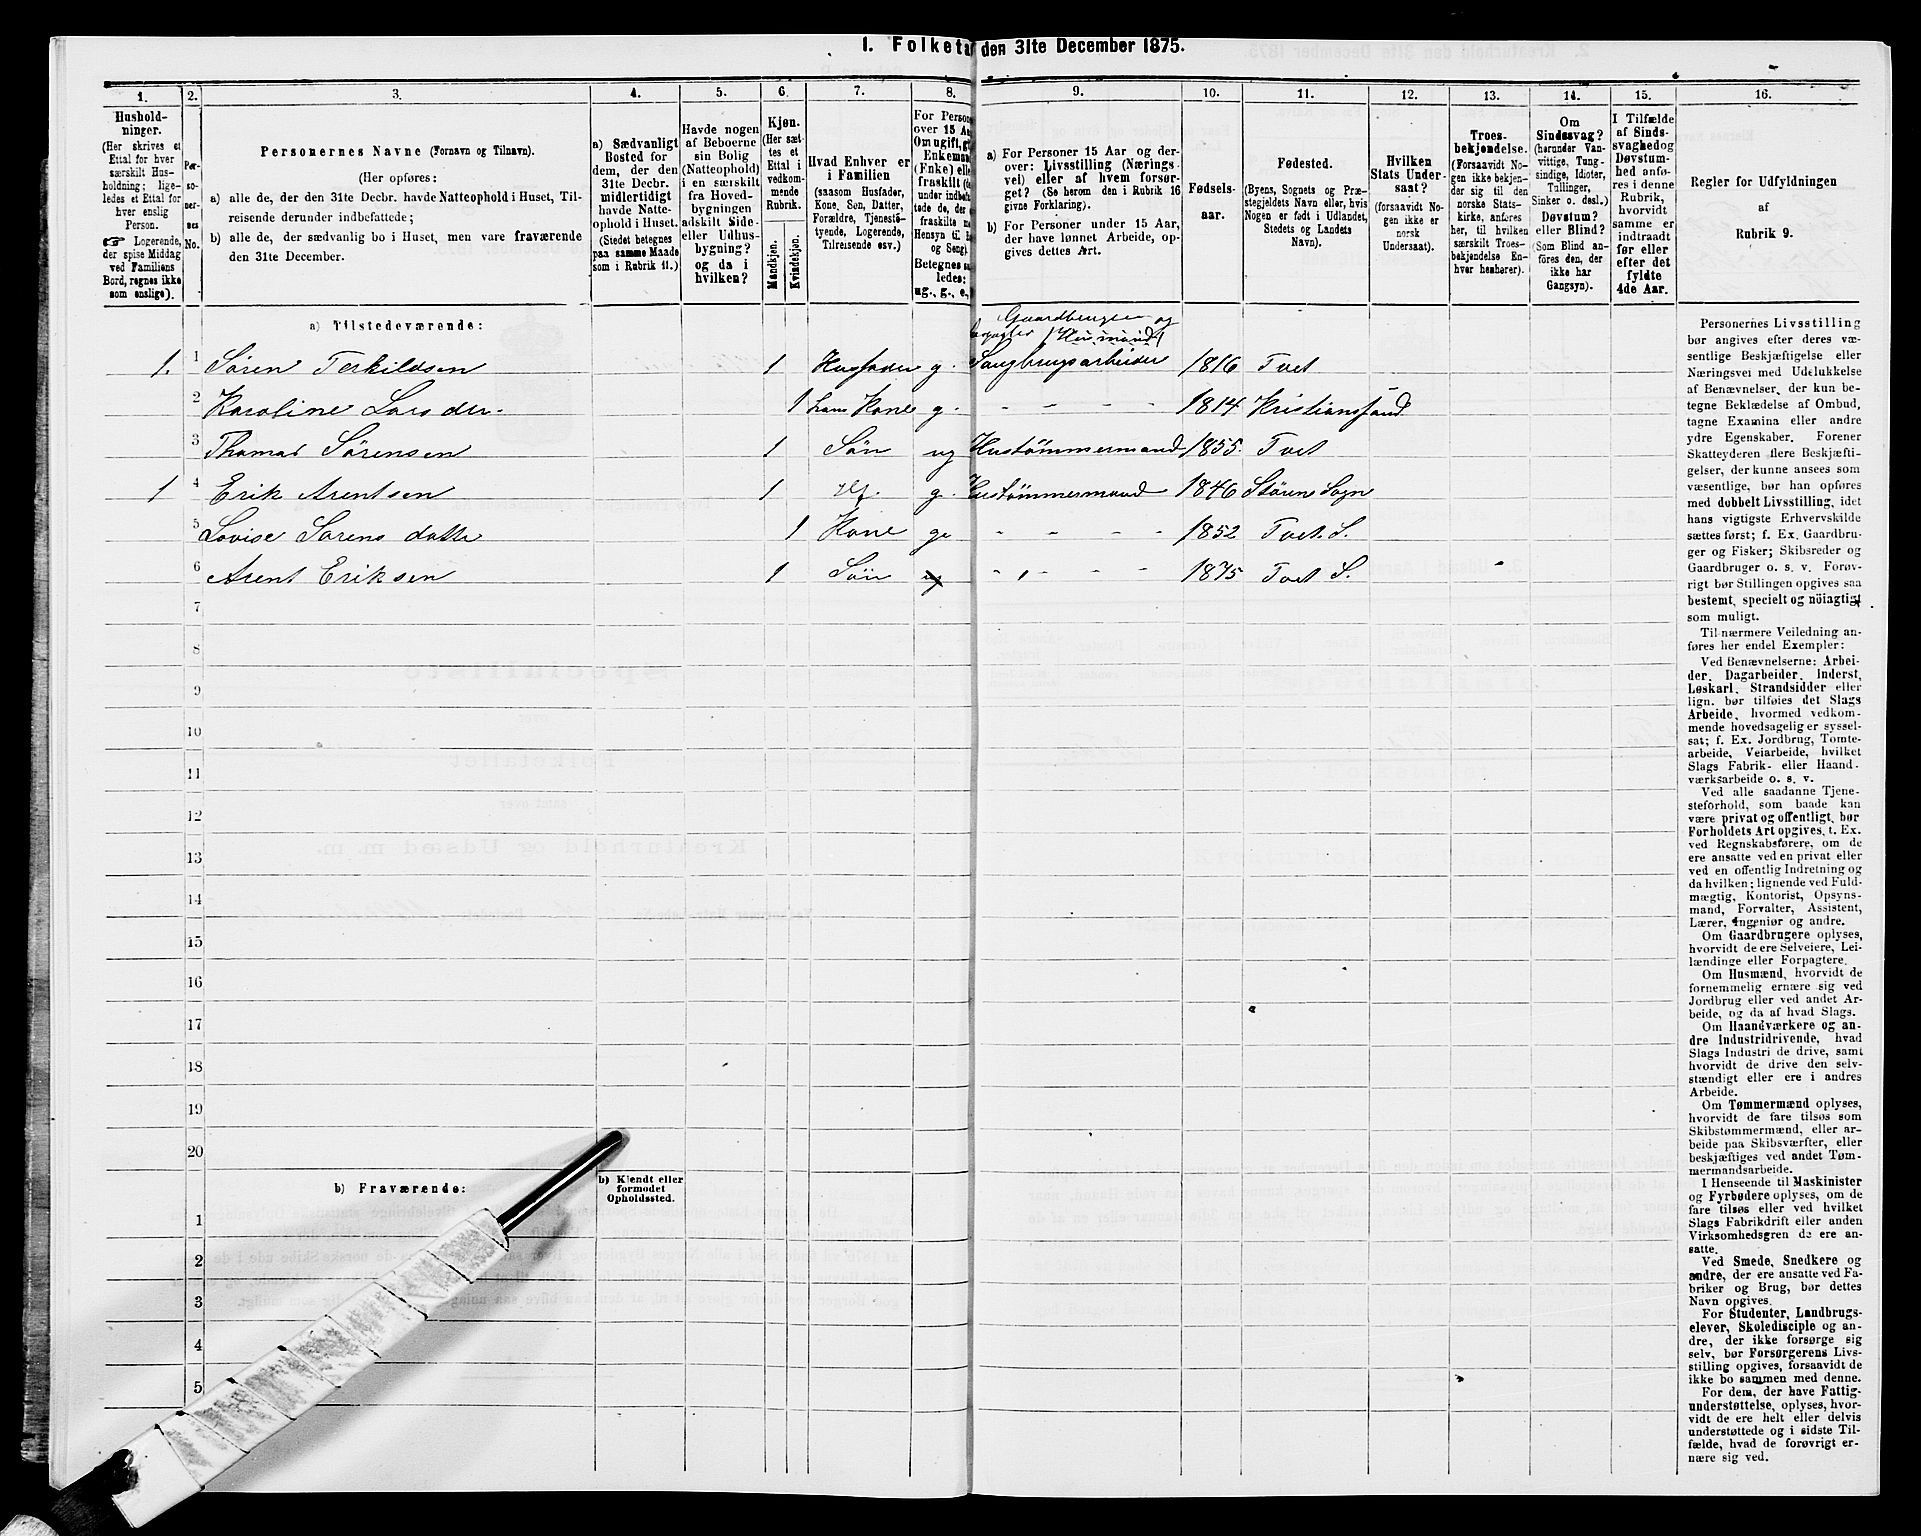 1. Folketal den 31te December 1875.
1. 2. 3. 4. 5. 6. 7. 8. 9. 10. 11. 12. 13. 14. 15. 16.
Hushold-
ninger.
(Her skrives et
Ettal for hver
særskilt Hus-
holdning; lige-
ledes et Ettal for
hver enslig
Person.
☞ Logerende,
der spise Middag
ved Familiens
Bord, regnes ikke
som enslige).
Per-
so-
ner-
nes
No.
Personernes Navne (Fornavn og Tilnavn).
(Her opføres:
a) alle de, der den 31te Decbr. havde Natteophold i Huset, Til-
reisende derunder indbefattede;
b) alle de, der sædvanlig bo i Huset, men vare fraværende
den 31te December.
a) Sædvanligt
Bosted for
dem, der den
31te Decbr.
midlertidigt
havde Natte-
ophold i Huset.
(Stedet betegnes
paa samme Maade
som i Rubrik 11.)
Havde nogen
af Beboerne
sin Bolig
(Natteophold)
i en særskilt
fra Hoved-
bygningen
adskilt Side-
eller Udhus-
bygning?
og da i
hvilken?
Kjøn.
(Her sæt-
tes et
Ettal i
vedkom-
mende
Rubrik.
Mandkjøn.
Kvindekjøn.
Hvad Enhver er
i Familien
(saasom Husfader,
Kone, Søn, Datter,
Forældre, Tjenestø-
tyende, Logerende,
Tilreisende osv.)
For Persone
over 15 Aa
Om ugift, gi
Enkemai
(Enke) elle
fraskilt (d
under indbe
tede de, der
fraskilte m
Hensyn til b
og Seng).
Betegnes sa
ledes:
ug., g., e,
a) For Personer 15 Aar og der-
over: Livsstilling (Nærings-
vei) eller af hvem forsør-
get? (Se herom den i Rubrik 16
givne Forklaring).
b) For Personer under 15 Aar,
der have lønnet Arbeide, op-
gives dettes Art.
Fødsels-
aar.
Fødested.
(Byens, Sognets og Præ-
stegjeldets Navn eller, hvis
Nogen er født i Udlandet,
Stedets og Landets
Navn).
Hvilken
Stats Under-
saat?
(forsaavidt No-
gen ikke er
norsk
Undersaat).
Troes-
bekjendelse.
(Forsaavidt No-
gen ikke bekjen-
der sig til den
norske Stats-
kirke, anføres
her, til hvilken
særskilt Troes-
bekjendelse En-
hver henhører).
Om
Sindssvag?
(herunder Van-
vittige, Tung-
sindige, Idioter,
Tullinger,
Sinker o. desl.)
Døvstum?
eller Blind?
(Som Blind an-
føres den, der
ikke har
Gangsyn).
I Tilfælde
af Sinds-
svaghed og
Døvstum-
hed anfø-
res i denne
Rubrik,
hvorvidt
samme er
indtraadt
før eller
efter det
fyldte
4de Aar.
Regler for Udfyldningen
af
Rubrik 9.
a) Tilstedeværende:
Gaardbruger og
(Husmand)
1. 1 Søren Terkildsen 1 Husfader g. Saugbrugsarbeider 1816 Tvet
2 Karoline Larsder. 1 hans Kone g. - - - - 1814 Kristianssand
3 Thomas Sørensen 1 Søn ug Hustømmermand 1855. Tvet
1 4 Erik Arentsen 1 Hf. g. Hustømmermand 1846 Støren Sogn
5 Lovise Sørensdatte 1 Kone ge - - - - 1852 Tvet. S.
6 Arent Eriksen 1 Søn ug - - - - 1875 Tvet S.
7
8
9
10
11
12
13
14
15
16
17
18
19
20
b) Fraværende:
b) Kjendt eller
formodet
Opholdssted.
1
2
3
4
5
Personernes Livsstilling
bør angives efter deres væ-
sentlige Beskjæftigelse eller
Næringsvei med Udelukkelse
af Benævnelser, der kun be-
tegne Beklædelse af Ombud,
tagne Examina eller andre
ydre Egenskaber. Forener
Skatteyderen flere Beskjæfti-
gelser, der kunne ansees som
væsentlige, bør han opføres
med dobbelt Livsstilling, idet
hans vigtigste Erhvervskilde
sættes først; f. Ex. Gaardbru-
ger og Fisker; Skibsreder og
Gaardbruger o. s. v. Forøv-
rigt bør Stillingen opgives saa
bestemt, specielt og nöiagtigt
som muligt.
Til nærmere Veiledning an-
føres her endel Exempler:
Ved Benævnelserne: Arbei-
der, Dagarbeider, Inderst,
Løskarl, Strandsidder eller
lign. bør tilføies det Slags
Arbeide, hvormed vedkom-
mende hovedsagelig er syssel-
sat; f. Ex. Jordbrug, Tomte-
arbeide, Veiarbeide, hvilket
Slags Fabrik- eller Haand-
værksarbeide o. s. v.
Ved alle saadanne Tjene-
steforhold, som baade kan
være privat og offentligt, bør
Forholdets Art opgives, t. Ex.
ved Regnskabsførere, om de
ere ansatte ved en privat eller
ved en offentlig Indretning og
da hvilken; lignende ved Fuld-
mægtig, Kontorist, Opsyns-
mand, Forvalter, Assistent,
Lærer, Ingeniør og andre.
Om Gaardbrugere oplyses,
hvorvidt de ere Selveiere, Lei-
lændinge eller Forpagtere.
Om Husmænd, hvorvidt de
fornemmelig ernære sig ved
Jordbrug eller ved andet Ar-
beide, og da af hvad Slags.
Om Haandværkere og an-
dre Industridrivende, hvad
Slags Industri de drive, samt
hvorvidt de drive den selv-
stændigt eller ere i andres
Arbeide.
Om Tømmermænd oplyses,
hvorvidt de fare tilsøs som
Skibstømmermænd, eller ar-
beide paa Skibsværfter, eller
beskjæftiges ved andet Tøm-
mermandsarbeide.
I Henseende til Maskinister
og Fyrbødere oplyses, om de
fare tilsøs eller ved hvilket
Slags Fabrikdrift eller anden
Virksomhedsgren de ere an-
satte.
Ved Smede, Snedkere og
andre, der ere ansatte ved Fa-
briker og Brug, bør dettes
Navn opgives.
For Studenter, Landbrugs-
elever, Skoledisciple og an-
dre, der ikke forsørge sig
selv, bør Forsørgerens Livs-
stilling opgives, forsaavidt de
ikke bo sammen med denne.
For dem, der have Fattig-
understøttelse, oplyses, hvor-
vidt de ere helt eller delvis
understøttede og i sidste Til-
fælde, hvad de forøvrigt er-
nære sig ved.